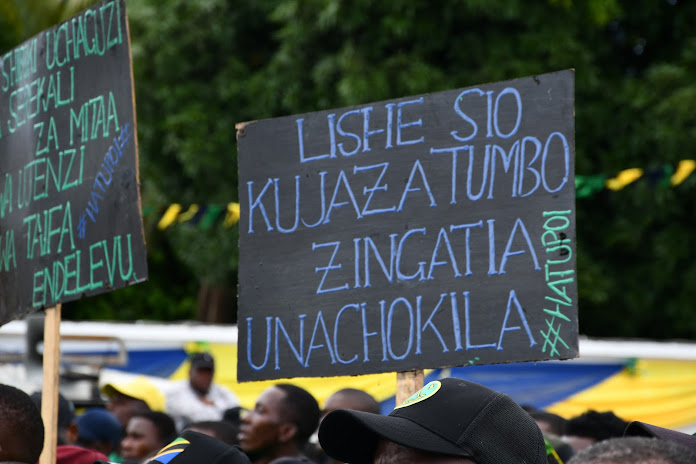 UCHAGUZI
SEREKALI
ZA MITAA
UJENZI
WA TAIFA
ENDELEVU.
#HATUPOI
LISHE SIO
KUJAZA TUMBO
ZINGATIA
UNACHOKILA
#HATUPOI